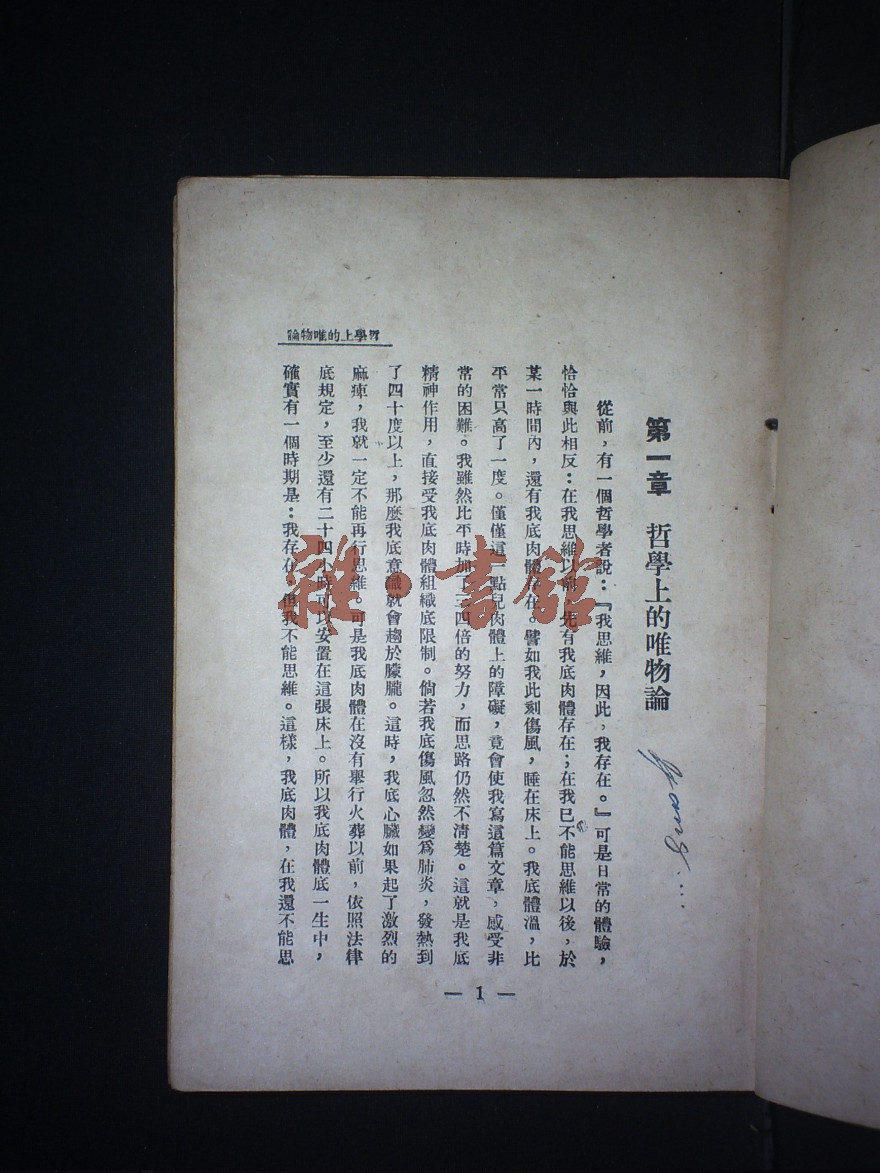 哲學上的唯物論
第一章 哲學上的唯物論
從前，有一個哲學者說：『我思維，因此，我存在。』可是日常的體驗，
恰恰與此相反：在我思維以前，先有我底肉體存在；在我已不能思維以後，於
某一時間內，還有我底肉體存在。譬如我此刻傷風，睡在床上。我底體溫，比
平常只高了一度。僅僅這一點兒肉體上的障礙，竟會使我寫這篇文章，感受非
常的困難。我雖然比平時加了三四倍的努力，而思路仍然不清楚。這就是我底
精神作用，直接受我底肉體組織底限制。倘若我底傷風忽然變爲肺炎，發熱到
了四十度以上，那麼我底意識就會趨於朦朧。這時，我底心臟如果起了激烈的
麻痺，我就一定不能再行思維。可是我底肉體在沒有舉行火葬以前，依照法律
底規定，至少還有二十四小時可以安置在這張床上。所以我底肉體底一生中，
確實有一個時期是：我存在，但我不能思維。這樣，我底肉體，在我還不能思
— 1 —
雜·書館